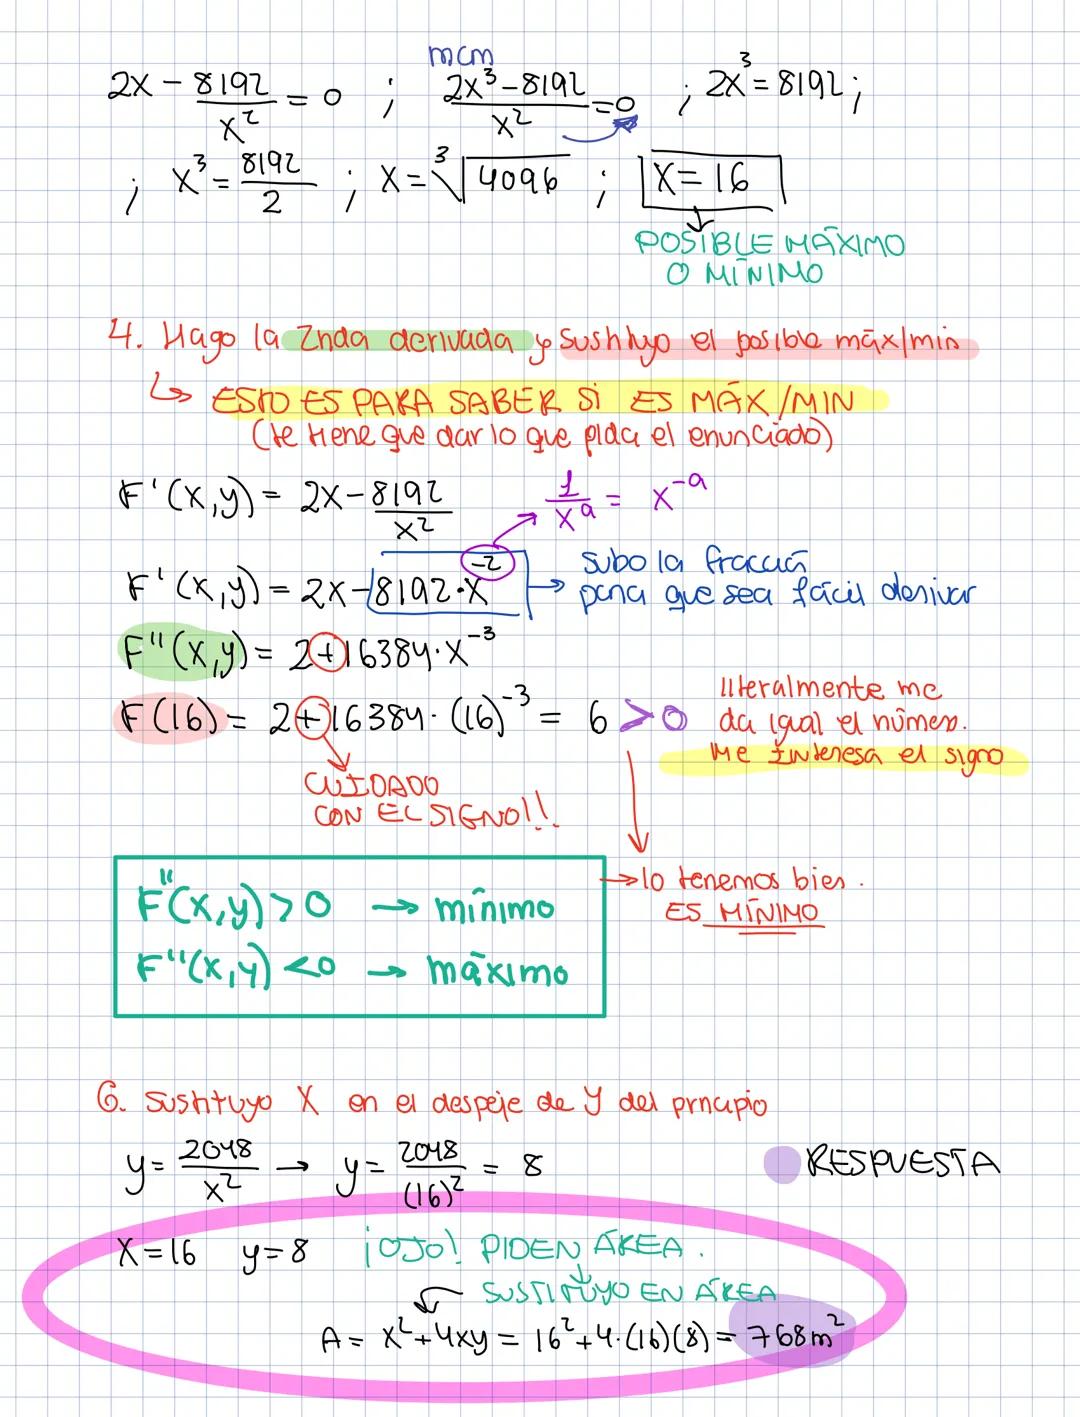 mcm
2x - 8192/x² = 0 ; 2x³-8192/x² = 0 ; 2x³ = 8192 ;
; x³ = 8192/2 ; x = ³√4096 ; x = 16
POSIBLE MÁXIMO
O MÍNIMO
4. Hago la 2nda derivada y sustituyo el posible máx/min
↳ ESTO ES PARA SABER SI ES MÁX/MIN
(te tiene que dar lo que pida el enunciado)
F'(x,y) = 2x - 8192/x² 1/xᵃ = x⁻ᵃ
F'(x,y) = 2x - 8192·x⁻² → subo la fracción
para que sea fácil derivar
F''(x,y) = 2+16384·x⁻³
F(16) = 2+16384·(16)⁻³ = 6 > 0
literalmente me
da igual el número.
Me interesa el signo
CUIDADO
CON EL SIGNO!!
→ lo tenemos bien.
ES MÍNIMO
F''(x,y) > 0 → mínimo
F''(x,y) < 0 → máximo
6. Sustituyo X en el despeje de Y del principio
y = 2048/x² → y = 2048/(16)² = 8
RESPUESTA
x = 16 y = 8 ¡OJO! PIDEN ÁREA.
SUSTITUYO EN ÁREA
A = x²+4xy = 16²+4·(16)(8) = 768m²